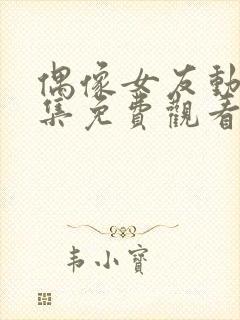 偶像女友動
集免費觀看
韦小寶